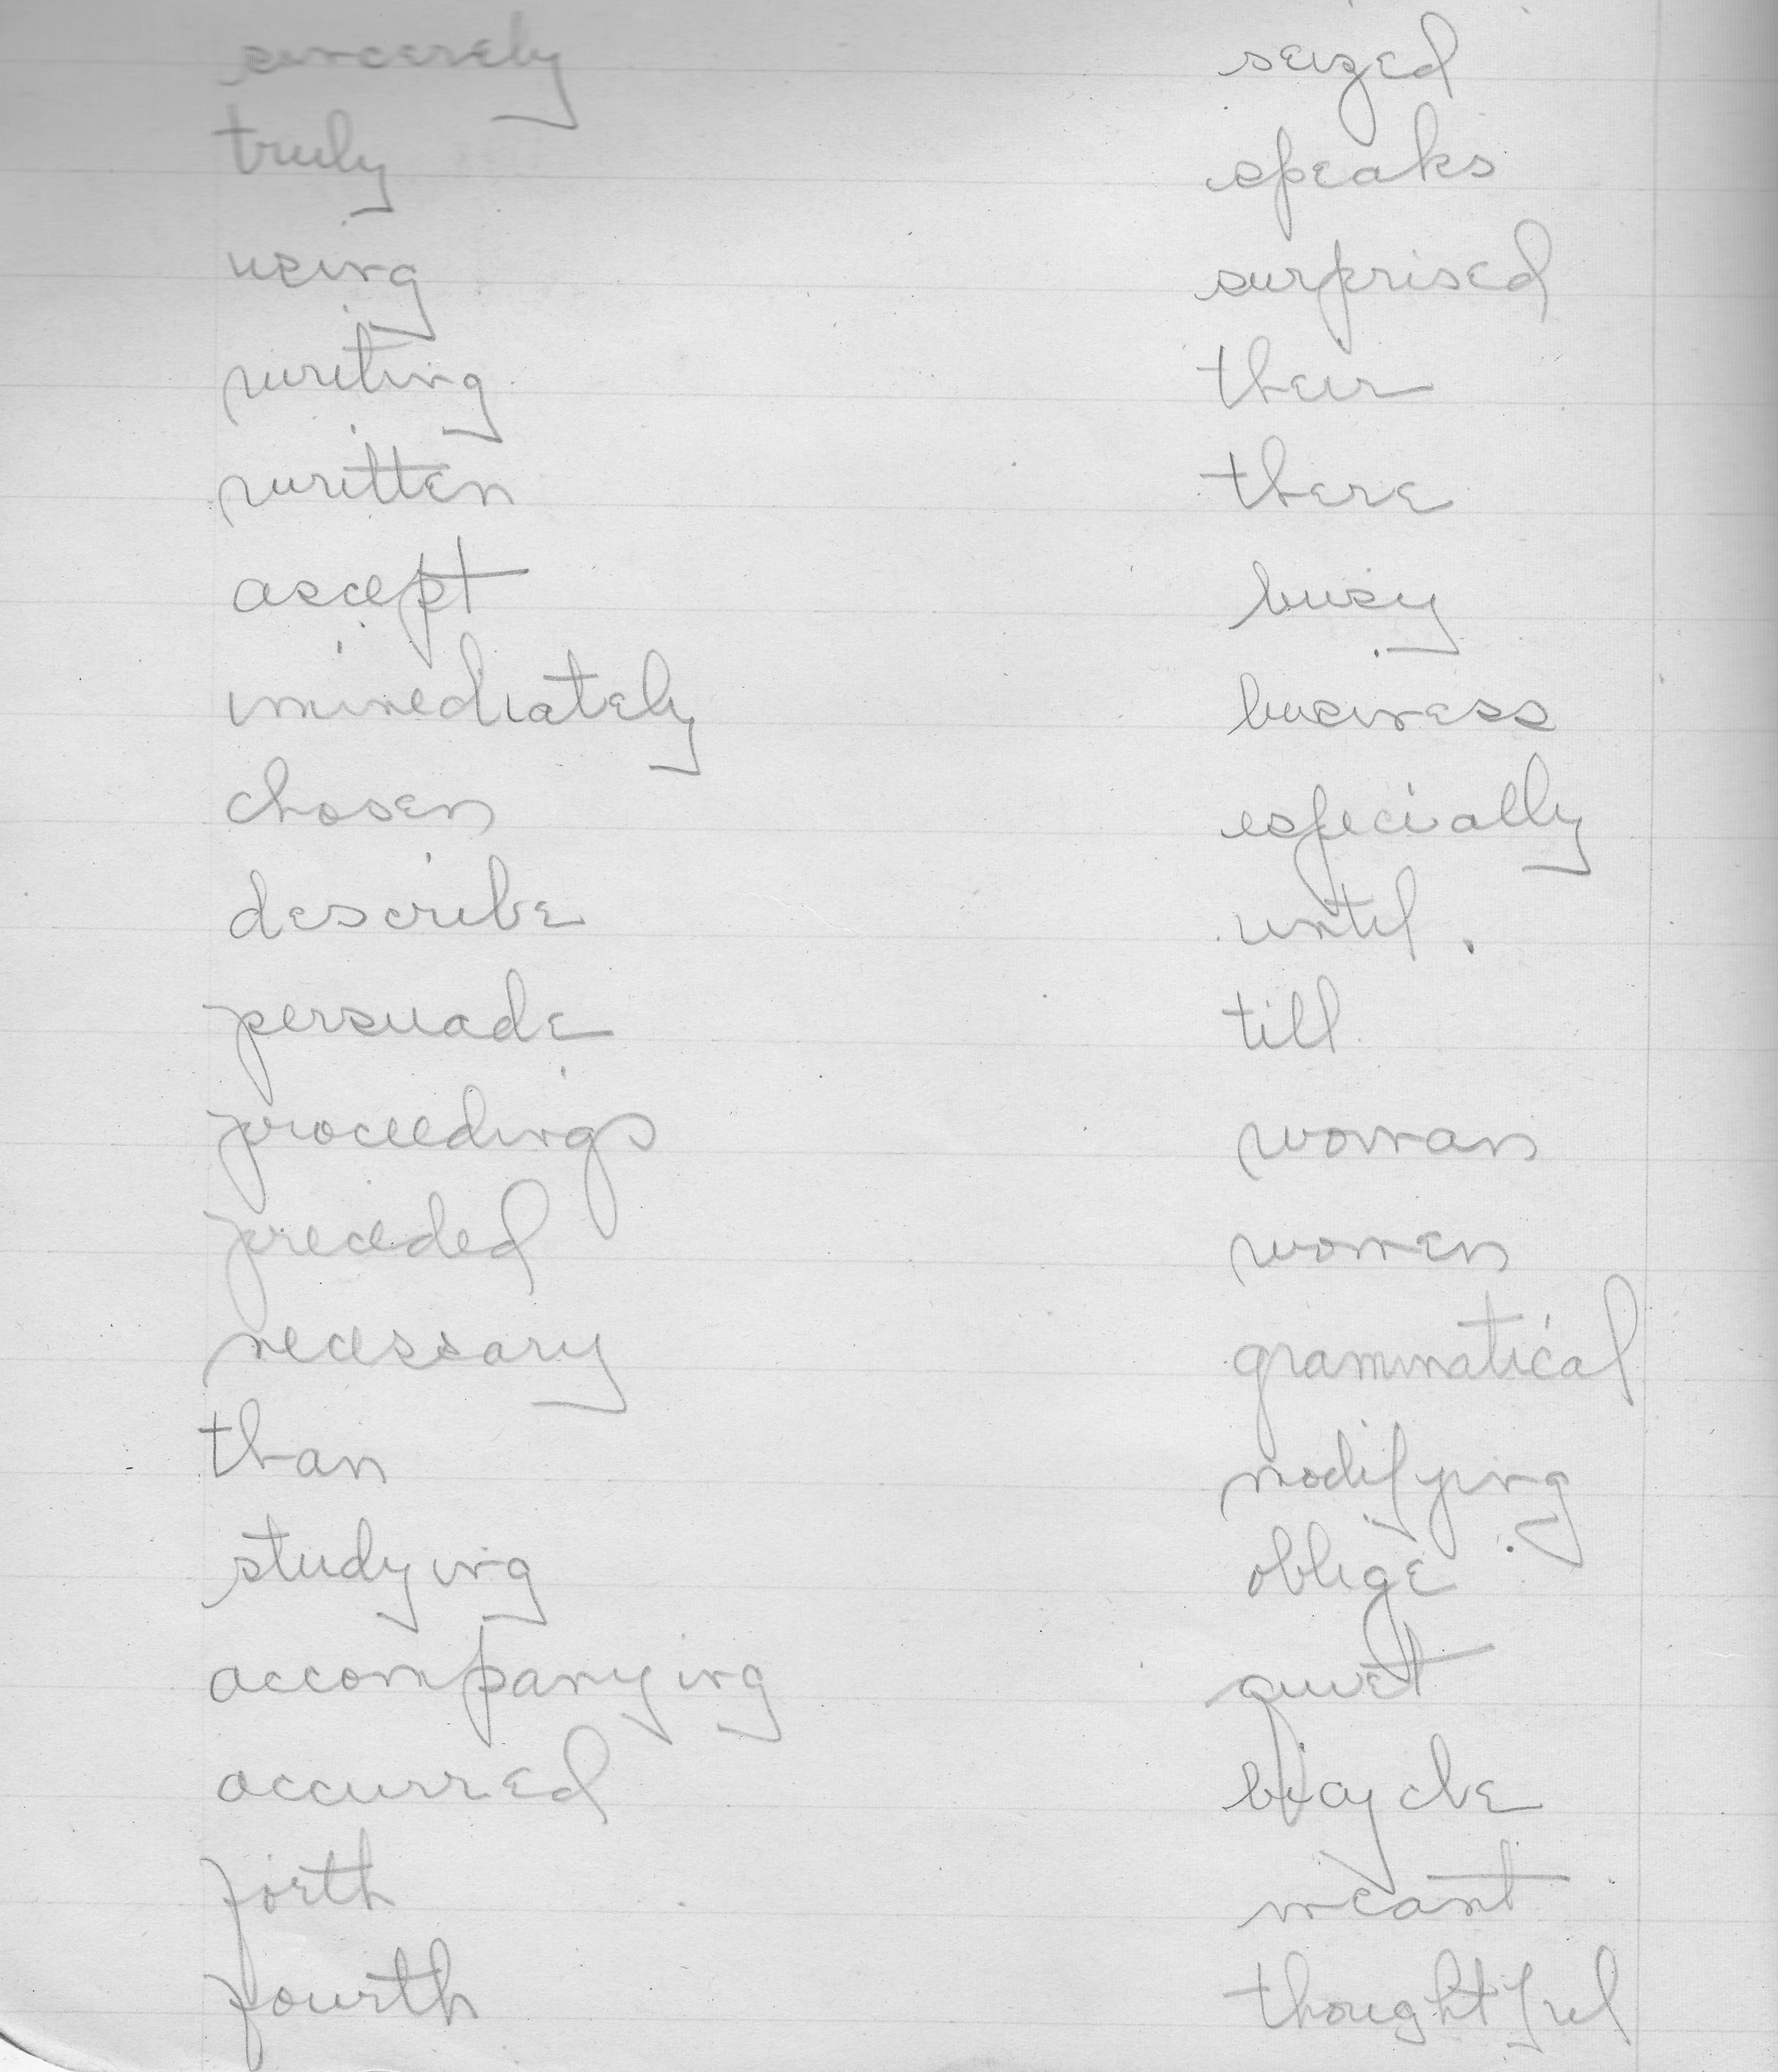 sincerely
truly
using
writing
written
ascept
immediately
chosen
describe
persuade
proceedings
preceded
necessary
than
studying
accompanying
occurred
forth
fourth
seized
speaks
surprised
their
there
busy
business
especially
until.
till
woman
women
grammatical
modifying
oblige
quiet
bicycle
meant
thoughtful